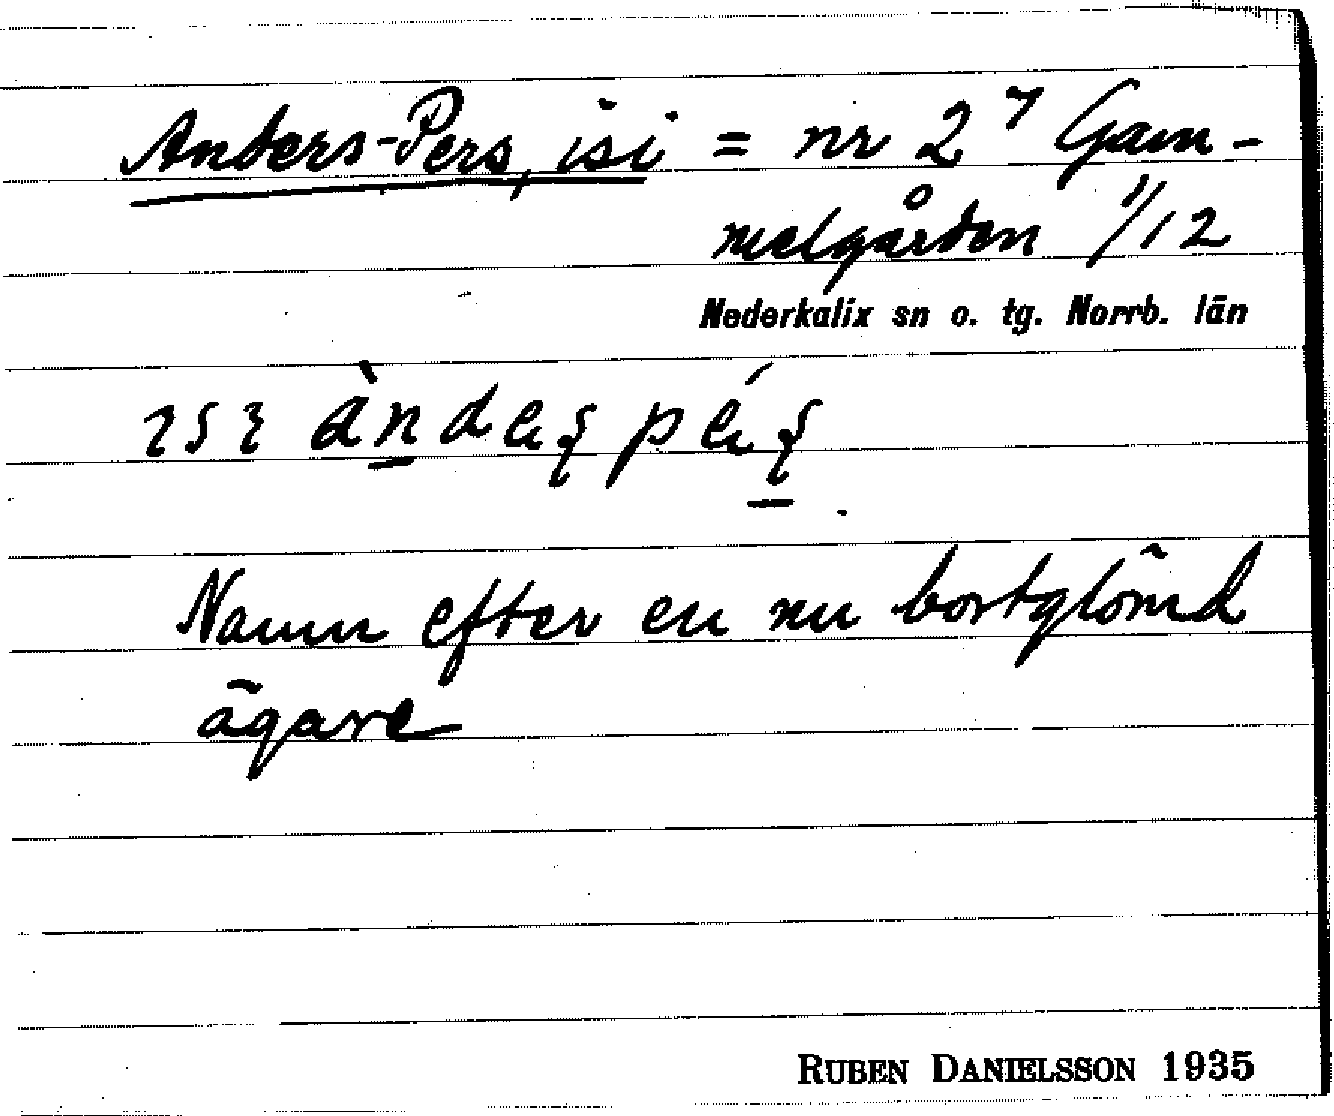 Anders-Pers, isi = nr 2⁷ Gam-
melgården 1/12
Nederkalix sn o. tg. Norrb. län
Namn efter en nu bortglömd
ägare
RUBEN DANIELSSON 1935